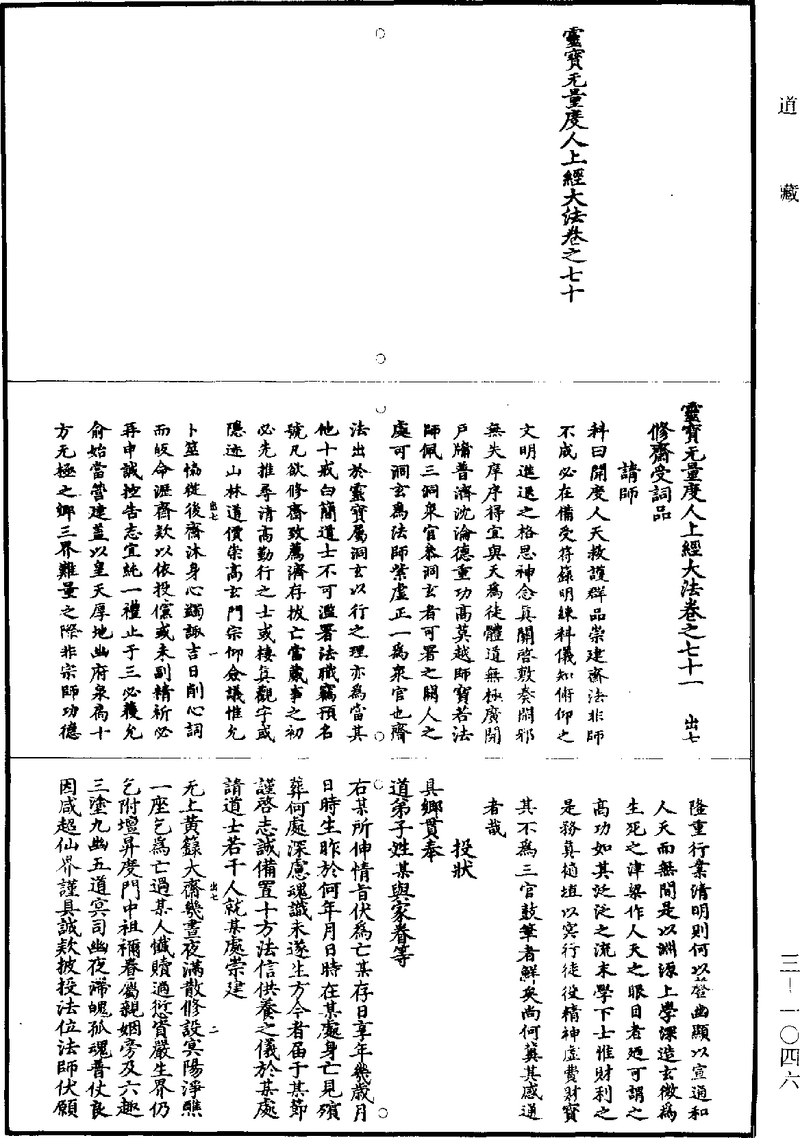 道藏
靈寶无量度人上經大法卷之七十
靈寶无量度人上經大法卷之七十一 出七
修齋受詞品
請師
科曰開度人天救護群品崇建齋法非師
不成必在備受符籙明練科儀知俯仰之
文明進退之格思神念真關啓敷奏閑邪
無失庠序得宜與天為徒體道無極廣開
戶牖普濟沈淪德重功高莫越師寶若法
師佩三洞衆官參洞玄者可署之關人之
處可洞玄為法師紫虛正一為衆官也齋
法出於靈寶屬洞玄以行之理亦為當其
他十戒白簡道士不可濫署法職竊預名
號凡欲修齋致薦濟存拔亡當蕆事之初
必先推尋清高勤行之士或棲真觀宇或
隱迹山林道價崇高玄門宗仰僉議惟允
出七 一
卜筮恊從後齋沐身心蠲諏吉日削心詞
而皈命瀝齋欵以依投儻或未副精祈必
再申誠控告志宜純一禮止于三必獲允
俞始當營建蓋以皇天厚地幽府泉扃十
方无極之鄉三界難量之際非宗師功德
隆重行業清明則何以登幽顯以宣通和
人天而無間是以淵源上學深造玄微為
生死之津梁作人天之眼目者廼可謂之
高功如其泛泛之流末學下士惟財利之
是務真擿埴以冥行徒役精神虛費財寶
其不為三官鼓筆者鮮矣尚何冀其感通
者哉
投狀
具鄉貫奉
道弟子姓某與家眷等
右某所伸情旨伏為亡某存日享年幾歲月
日時生昨於何年月日時在某處身亡見殯
葬何處深慮魂識未遂生方今者屆于某節
謹啓志誠備置十方法信供養之儀於某處
請道士若干人就某處崇建
出七 二
无上黃籙大齋幾晝夜滿散修設冥陽淨醮
一座乞為亡過某人懺贖過愆資嚴生界仍
乞附壇昇度門中祖禰眷屬親姻旁及六趣
三塗九幽五道冥司幽夜滯魄孤魂普仗良
因咸超仙界謹具誠欵披投法位法師伏願
三－一〇四六